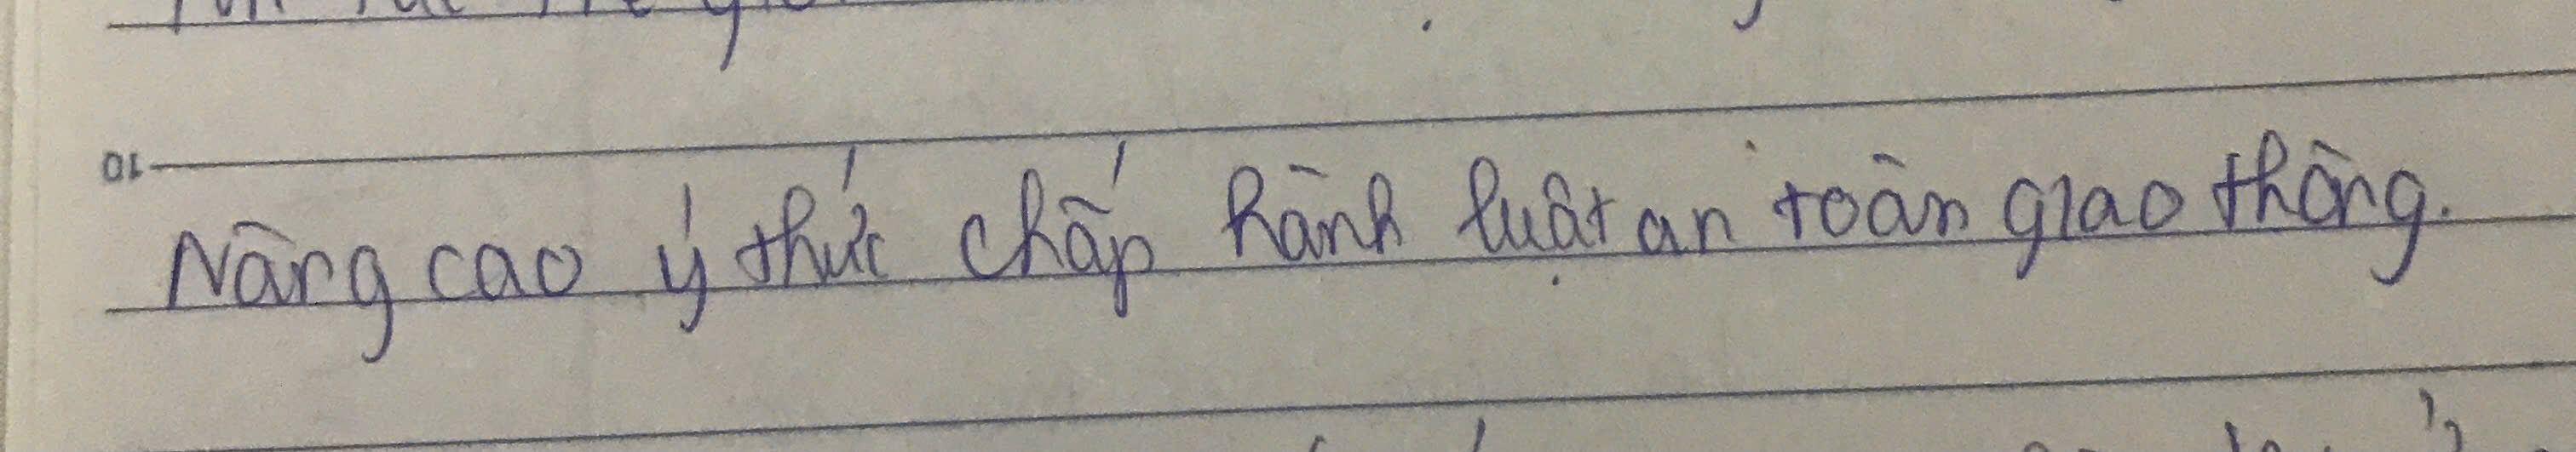 Nâng cao ý thức chấp hành luật an toàn giao thông.